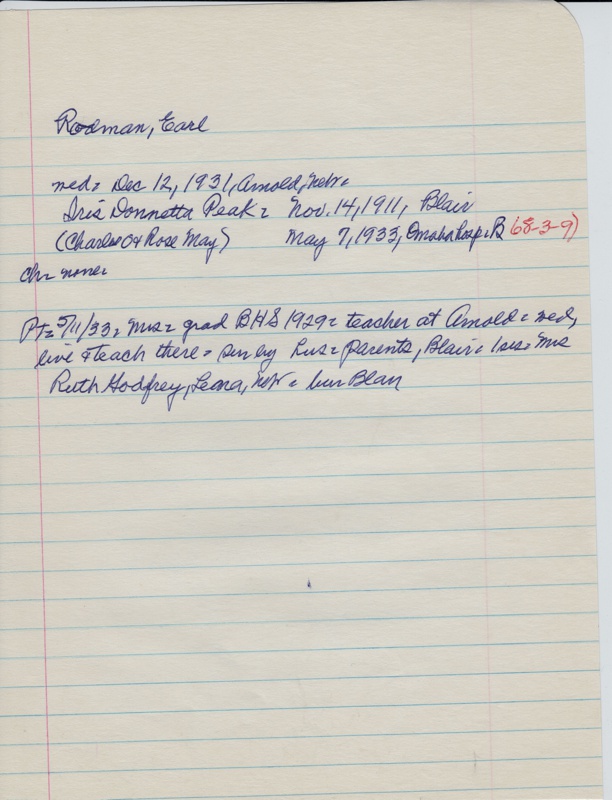 Rodman, Earl
med= Dec 12, 1931, Arnold, Nebr=
Iris Donnetta Peak= Nov. 14, 1911, Blair
(Charles O & Rose May) May 7, 1933, Omaha hosp= B (68-3-9)
ch= none=
PT= 5/11/33= Mrs= grad BHS 1929= teacher at Arnold= med,
live & teach there= sur by hus= parents, Blair= 1 sis= Mrs
Ruth Godfrey, Nebr= bur Blair